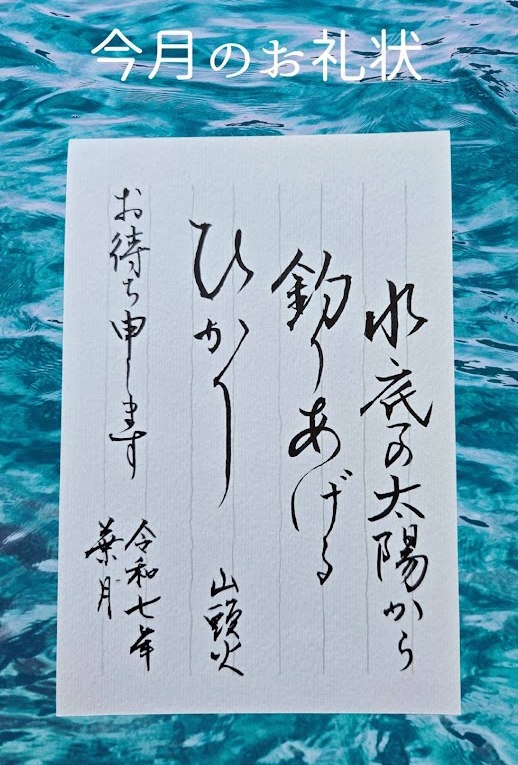 今月のお礼状
水底の太陽から
釣りあげる
ひかり
山頭火
お待ち申します
令和七年
葉月